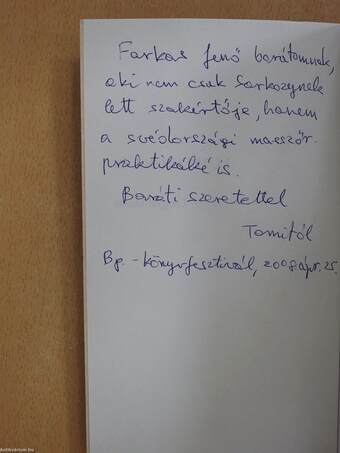 Farkas Jenő barátomnak,
aki nem csak Sarkozynek
lett szakértője, hanem
a svédországi
praktikáké is.
Baráti szeretettel
Tomitól
Bp. - könyvfesztivál, 2008. ápr. 25.